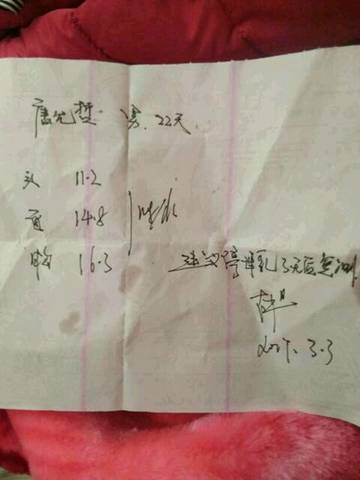 男.22天
头 11.2
面 14.8
胸 16.3 建议停母乳3天后复测
2017.3.3